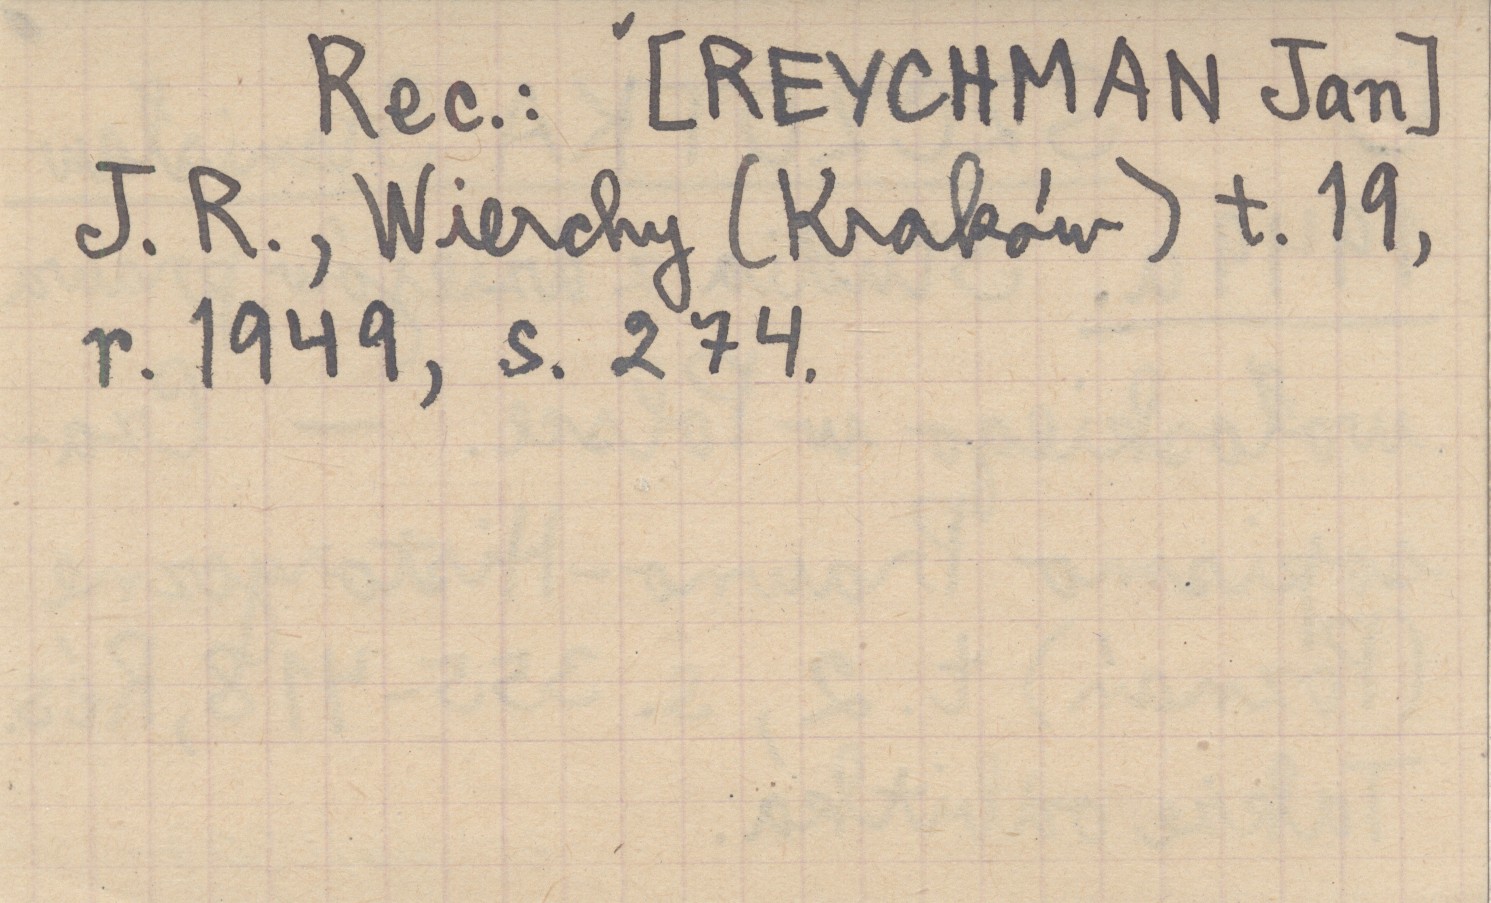 Rec.: [REYCHMAN Jan]
J. R., Wierchy (Kraków) t. 19,
r. 1949, s. 274.